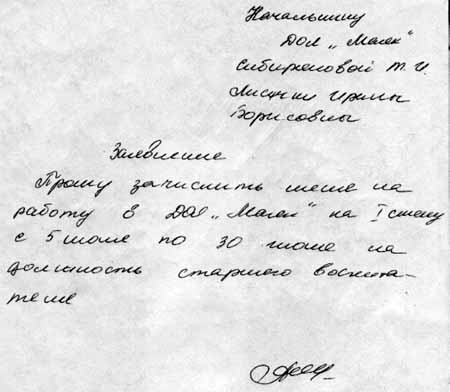 Начальнику
ДОЛ „Маяк"
Сибиряковой Т. И.
Ирины
Борисовны
Заявление
Прошу зачислить меня на
работу в ДОЛ „Маяк" на I смену
с 5 июня по 30 июня на
должность старшего воспита-
теля